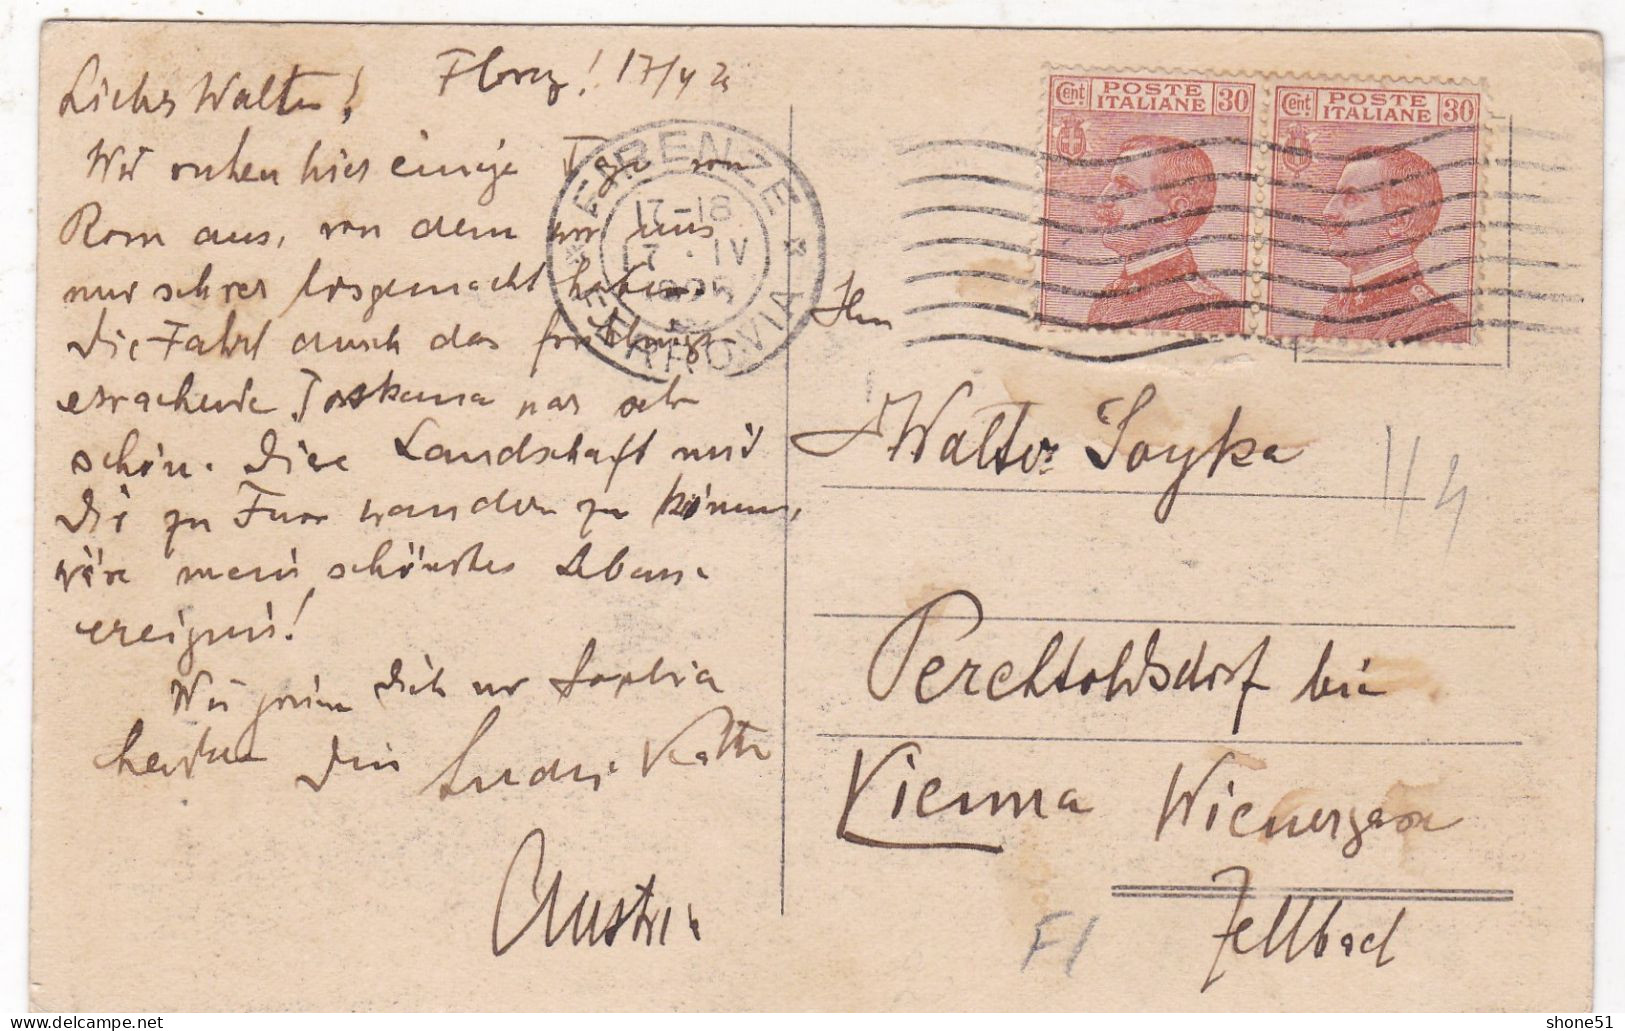 Florenz! 17/4 25
Liebes Walter!
Wir ruhen hier einige Tage von
Rom aus, von dem wir uns
nur schwer losgemacht haben.
Die Fahrt durch das frühlings
erwachende Toskana war sehr
schön. Diese Landschaft mit
Dir zu Fuss wandern zu können,
wäre mein schönstes Lebens-
ereignis!
Wir grüßen Dich und Sophia
herzlich Dein Käthe
Austria
FIRENZE
17-18
17 · IV
1925
FERROVIA
Cent POSTE ITALIANE 30
Cent POSTE ITALIANE 30
Hrn
Walter Soyka
Perchtoldsdorf bei
Vienna Wienergasse
Zellbad
H4
FI
shone51